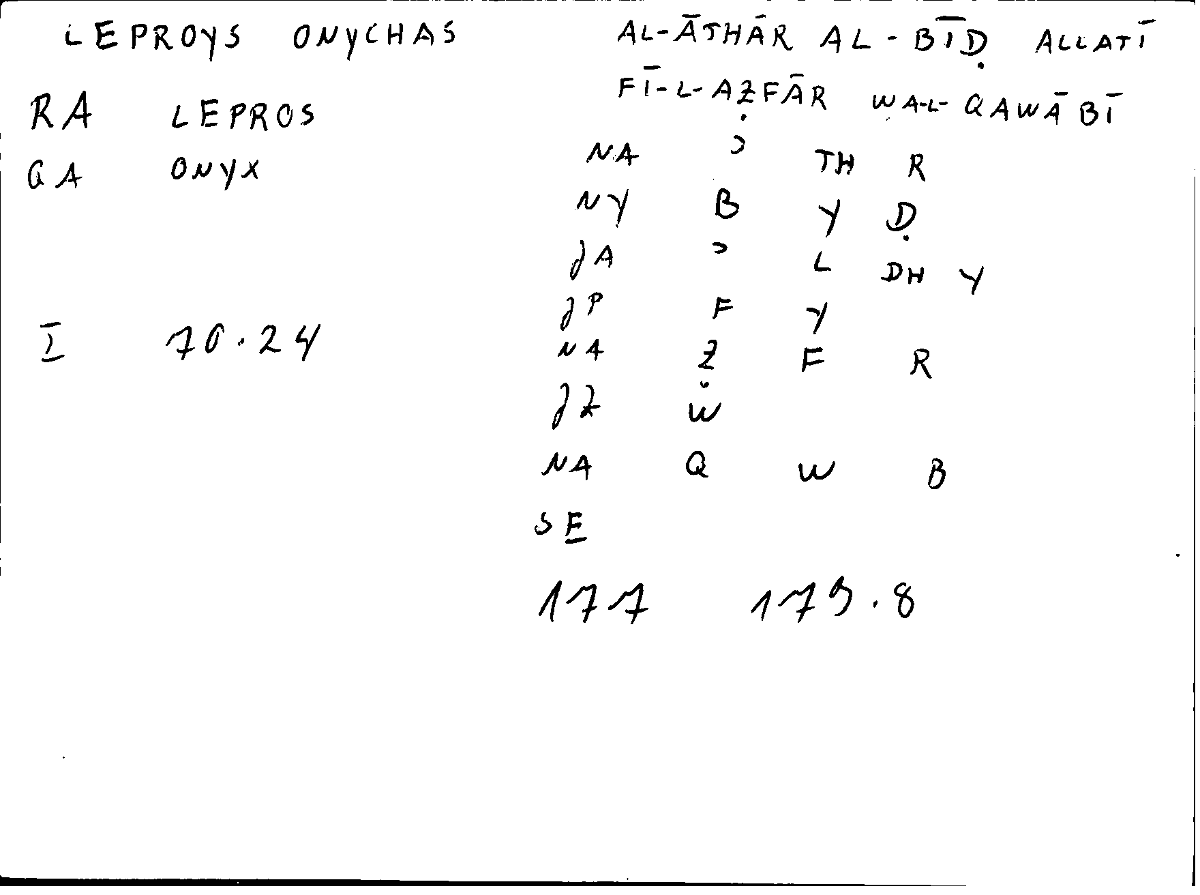 LEPROYS ONYCHAS
RA LEPROS
GA ONYX
I 70.24
AL-ĀTHĀR AL-BĪḌ ALLATĪ
FĪ-L-AẒFĀR WA-L-QAWĀBĪ
NA ʾ TH R
NY B Y Ḍ
JA ʾ L DH Y
JP F Y
NA Ẓ F R
JZ W
NA Q W B
SE
177 179.8